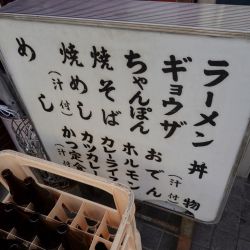 ラーメン
ギョウザ
ちゃんぽん
焼そば
焼めし
(汁付)
めし
丼物
(汁付)
おでん
ホルモン
カーライス
カツカレー
かつ定食
(汁付)